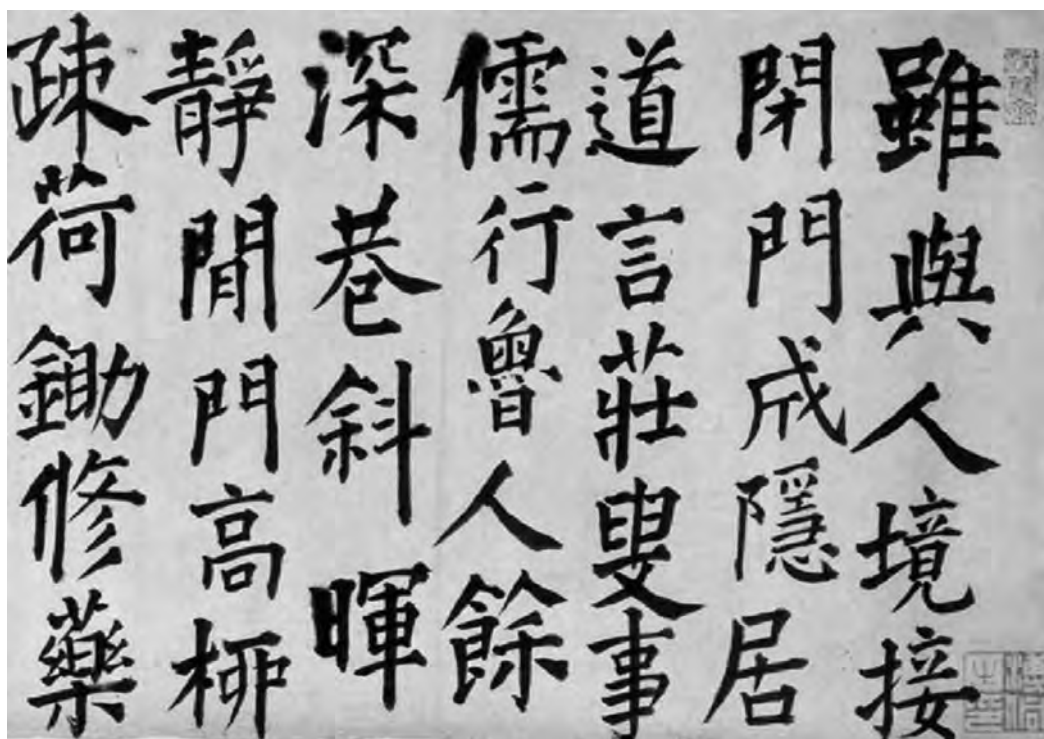 雖與人境接
閉門成隱居
道言莊叟事
儒行魯人餘
深巷斜暉
靜閒門高柳
疎荷鋤修藥